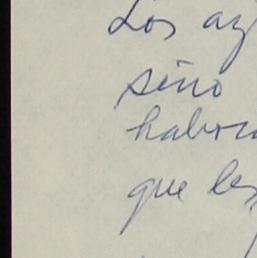 Los az
sino
habra
que les